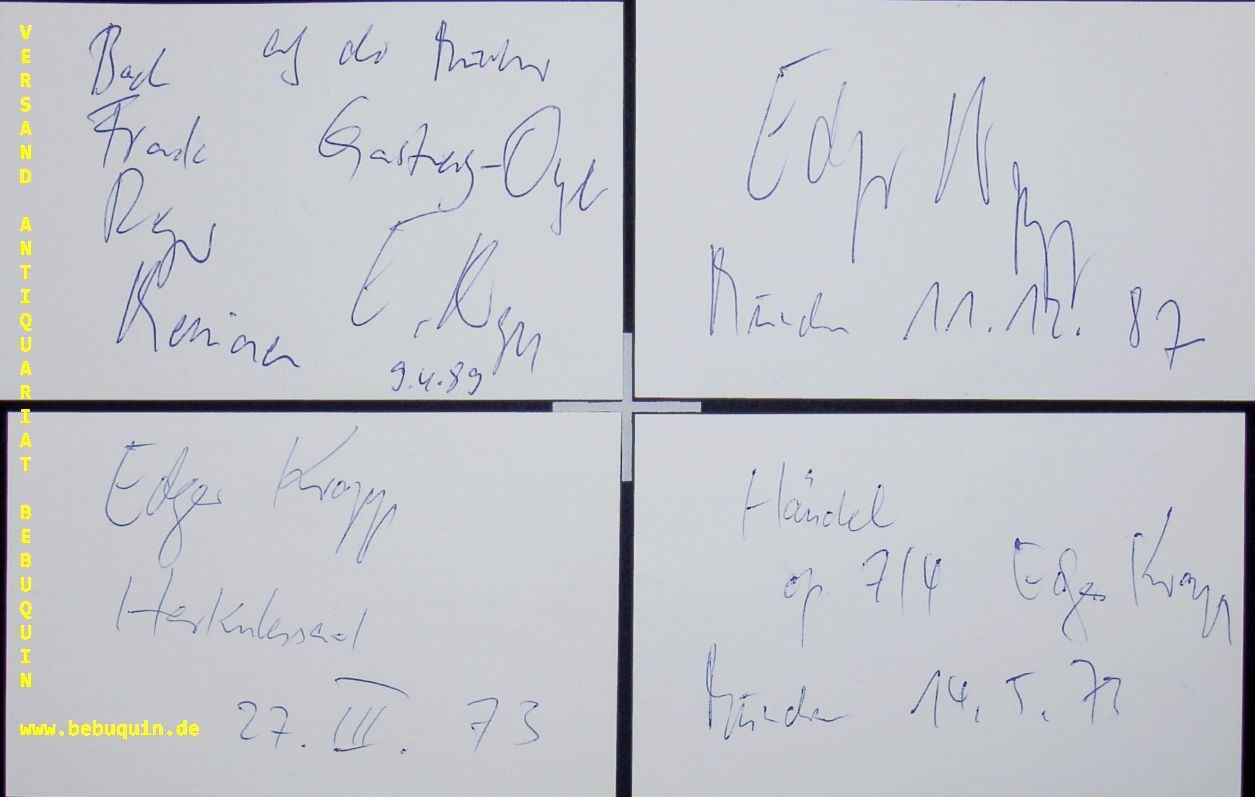 VERSAND ANTIQUARIAT BEBUQUIN
www.bebuquin.de
Bach auf der Münchner
Franck Gasteig-Orgel
Reger
Messiaen E. Krapp
9.4.89
Edgar Krapp
München 11.12.87
Edgar Krapp
Herkulessaal
27. III. 73
Händel
op 7/4 Edgar Krapp
München 14. 5. 73